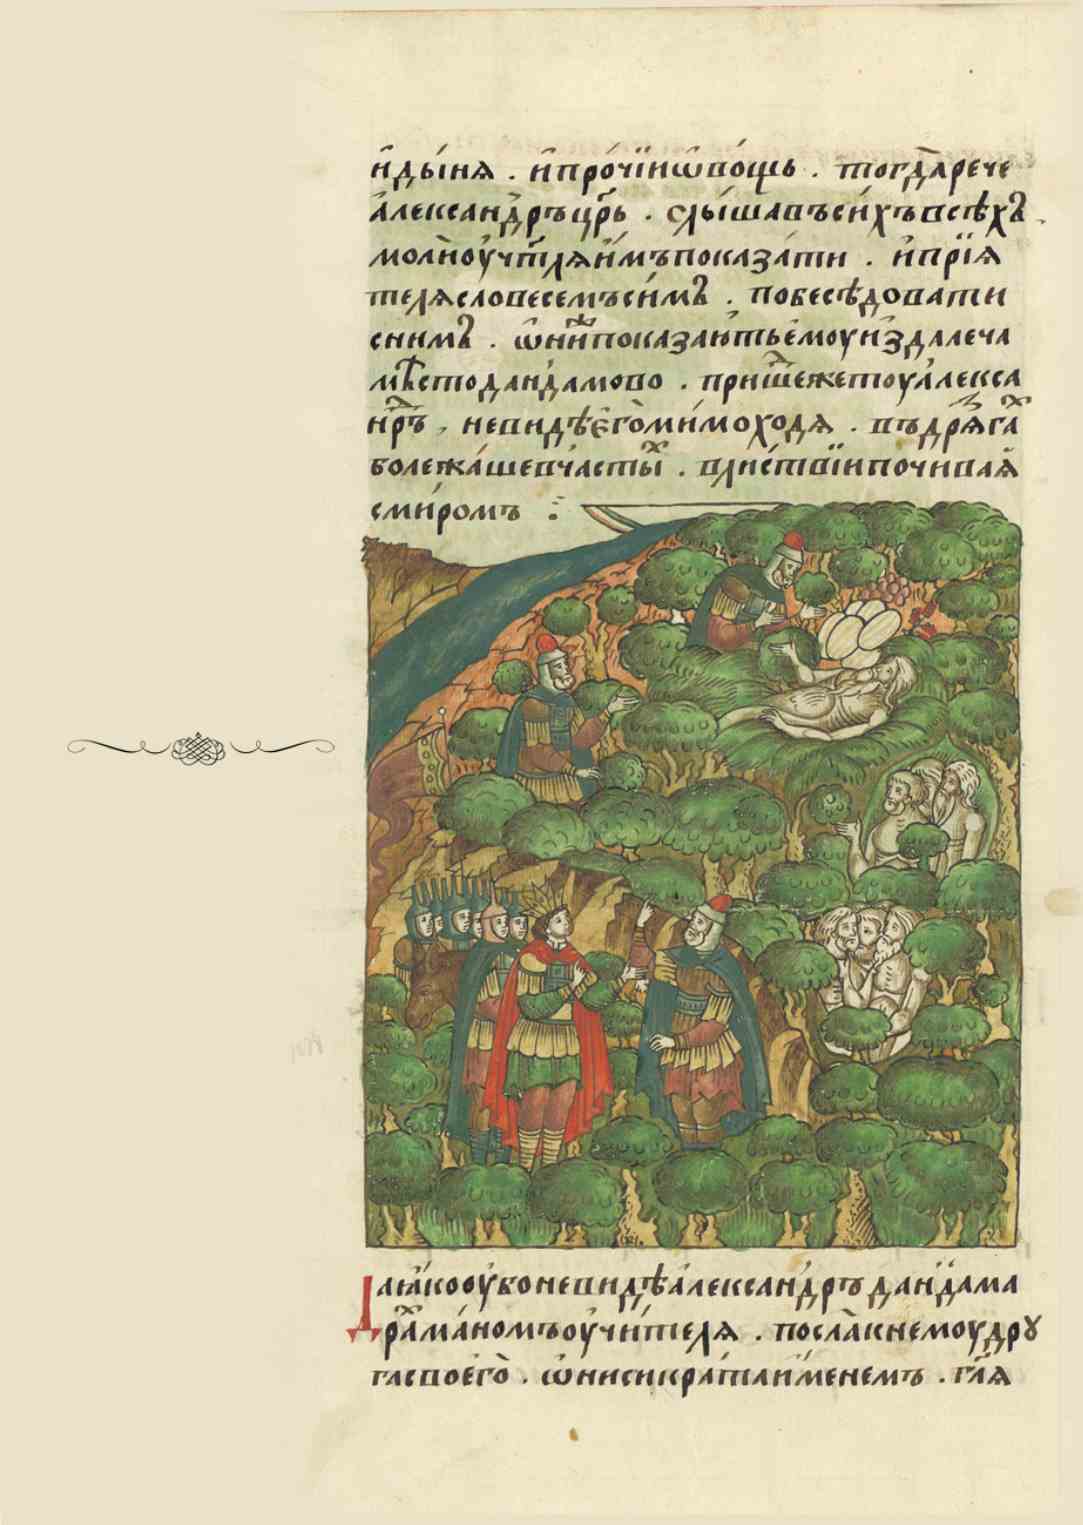 и҆ды́нѧ . и҆про́чїиѡво́щь . тогда̀рече
а҆леѯандръцр҃ь . слы́шавъси́хъвсѣ́хъ
молѝоу҆чт҃лѧи҆мъпоказа́ти . и҆прїѧ
телѧсловесемъси́мъ . побесѣ́довати
снимъ . ѡ҆ни́жпоказаю́тьемоуи҆здалеча
мѣ́стодандамово . прише́жетоуа҆лекса
нръ , невидѣ̀є҆го̀ми́моходѧ . въдрѧга
болежа́шевча́стыꙗ . вли́ствїипочиваѧ
сми́ромъ :
Даꙗ́кооу҆боневидѣ̀а҆леѯандръ дандама
рахма́номъоу҆чи́телѧ . посла̀кнемоудрꙋ
гасвоего̀ . ѡ҆нисикра́таи́менемъ . гл҃ѧ